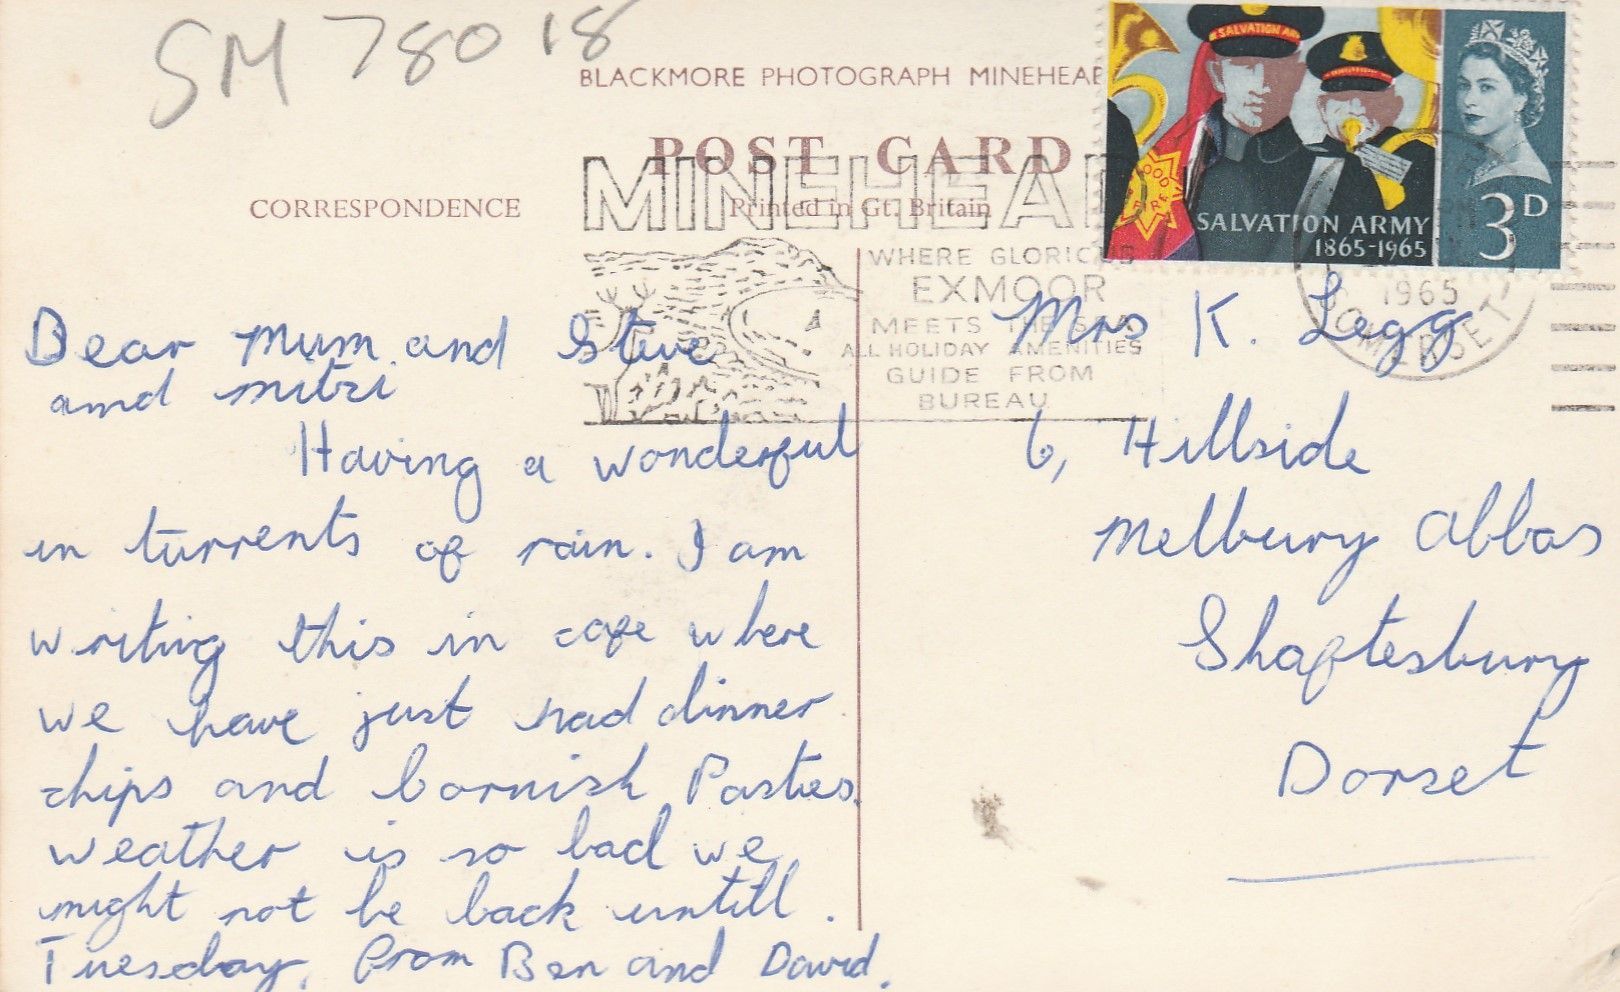 SM 78018
BLACKMORE PHOTOGRAPH MINEHEAD
POST CARD
CORRESPONDENCE
Printed in Gt. Britain
MINEHEA
WHERE GLORIOUS
EXMOOR
MEETS THE SEA
ALL HOLIDAY AMENITIES
GUIDE FROM
BUREAU
SALVATION ARMY
1865-1965
3D
1965
SOMERSET
Dear Mum and Steve
and mitzi
Having a wonderful
in turrents of rain. I am
writing this in cafe where
we have just had dinner
chips and cornish Pasties.
weather is so bad we
might not be back untill
Tuesday, From Ben and David.
Mrs K. Legg
6, Hillside
Melbury Abbas
Shaftesbury
Dorset